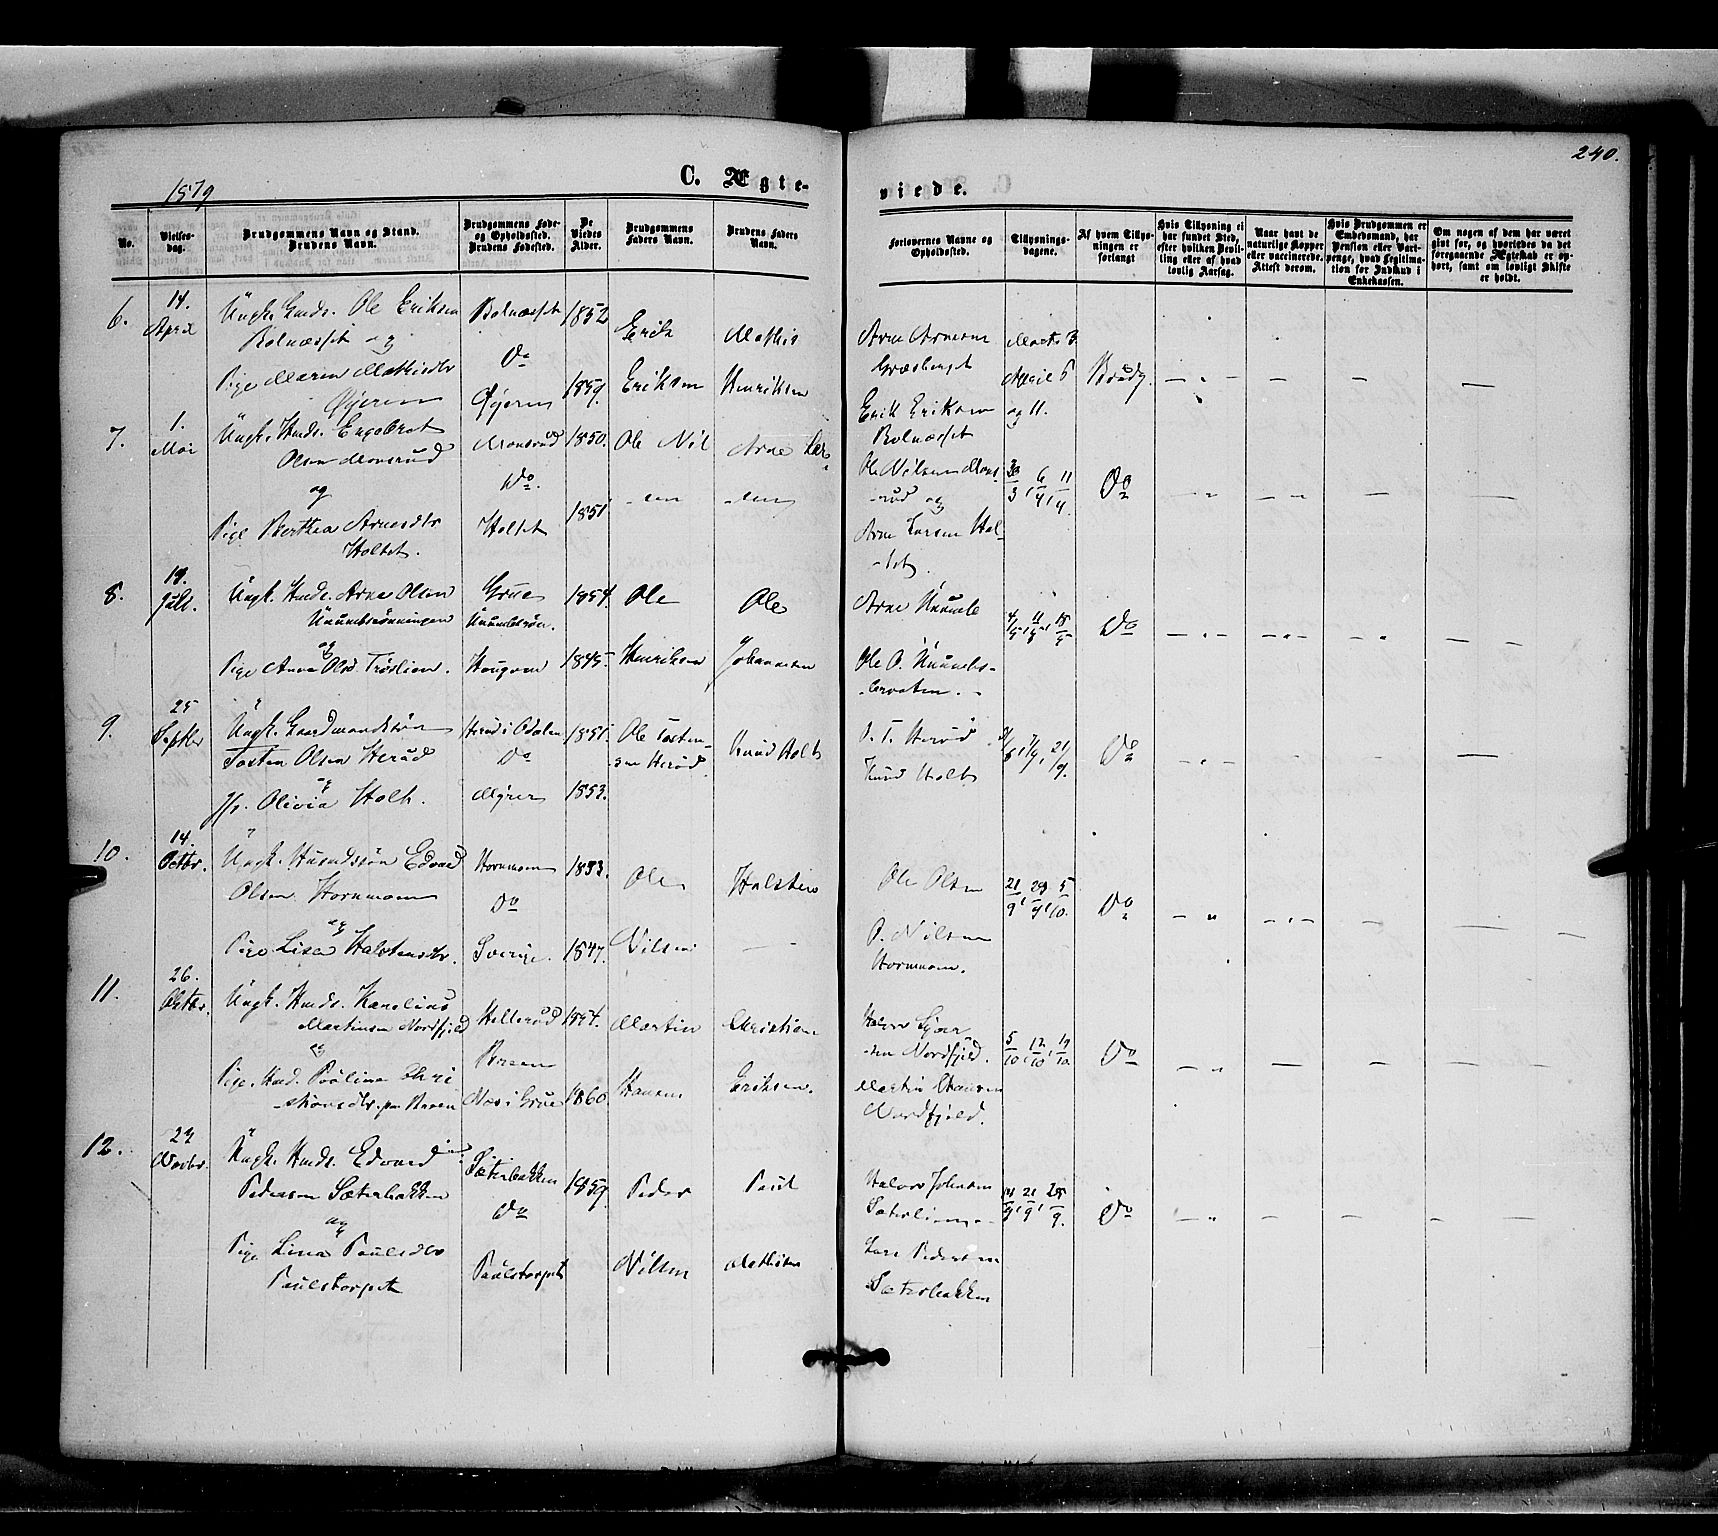 240.
1879
C. Ægte-
viede.
No.
Vielses-
dag.
Brudgommens Navn og Stand.
Brudens Navn.
Brudgommens Føde-
og Opholdssted.
Brudens Fødested.
De
Viedes
Alder.
Brudgommens
Faders Navn.
Brudens Faders
Navn.
Forlovernes Navne og
Opholdssted.
Tillysnings-
dagene.
Af hvem Tillys-
ningen er
forlangt
Hvis Tillysning ei
har fundet Sted,
efter hvilken Bevil-
ling eller af hvad
lovlig Aarsag.
Naar havt de
naturlige Kopper
eller vaccinerede.
Attest derom.
Hvis Brudgommen er
Embedsmand, har
Pension eller Vart-
penge, hvad Legitima-
tion for Indskud i
Enkekassen.
Om nogen af dem har været
givt før, og hvorledes da det
foregaaende Ægteskab er op-
hørt, samt om lovligt Skifte
er holdt.
6.
14.
April
Ungk. Gmds. Ole Eriksen
Bolnæsset og
Pige Maren Mathisdtr
Øyeren
Bolnæsset
Do
Øyeren
1852
1859.
Erik
Eriksen
Mathis
Henriksen
Arne Arnesen
Græsberget
Erik Eriksen
Bolnæsset
Marts 3
April 5
og 11.
Brudg.
7.
1.
Mai
Ungk. Hmds. Engebret
Olsen Monsrud
og
Pige Berthea Arnesdtr
Holtet.
Monsrud
Do.
Holtet
1850.
1851
Ole Nil
-sen
Arne Lar
-sen
Ole Nilsen Mons
-rud og
Arne Larsen Hol-
-tet.
30/3, 6/4, 11/4.
Do
8.
19.
Juli.
Ungk. Hmds. Arne Olsen
og
Pige Anna Olsd. Trøslien.
Grue
1854.
1845.
Ole
Henriksen
Ole
Johannesen
Arne
Ole O.
Do
9.
25
Septbr
Ungk. Gaardmandssøn
Tosten Olsen Herud
og
Jfr. Olivia Holt.
Herud i Odalen
Do
Myrer
1851.
1853.
Ole Tosten-
sen Herud.
Knud Holt
O. T. Herud
Knud Holt
7/9, 21/9.
Do
10.
14.
Octbr.
Ungk. Husmdssøn Edvard
Olsen Hornmoen
og
Pige Lisa Halstensdtr.
Hornmoen
Do
Sverige.
1853.
1847.
Ole
Nilsen
Halsten
Ole Olsen
O. Nilsen
Hornmoen.
21/9, 28/9, 5/10.
Do
11.
26.
Oktbr.
Ungk. Hmds. Karelius
Martinsen Nordfjeld
og
Pige. Hmd. Pouline Chri
-stiansdtr.
Hellerud
Næs i Grue
1854.
1860.
Martin
Hansen
Christian
Eriksen.
Halvor
-sen Nordfjeld.
Martin Hansen
Nordfjeld.
5/10, 12/10, 19/10.
Do
12.
Novbr.
Ungk. Hmds. Edvard
Pedersen Sæterbakken
og
Pige Lina Paulsdtr
Paulstorpet
Sæterbakken
Do
Paulstorpet
1859.
Peder
Nilsen
Paul
Mathisen
Halvor Johnsen
Sæterlien
Lars Pedersen
Sæterbakken
14/9, 21/9, 28/9.
Do